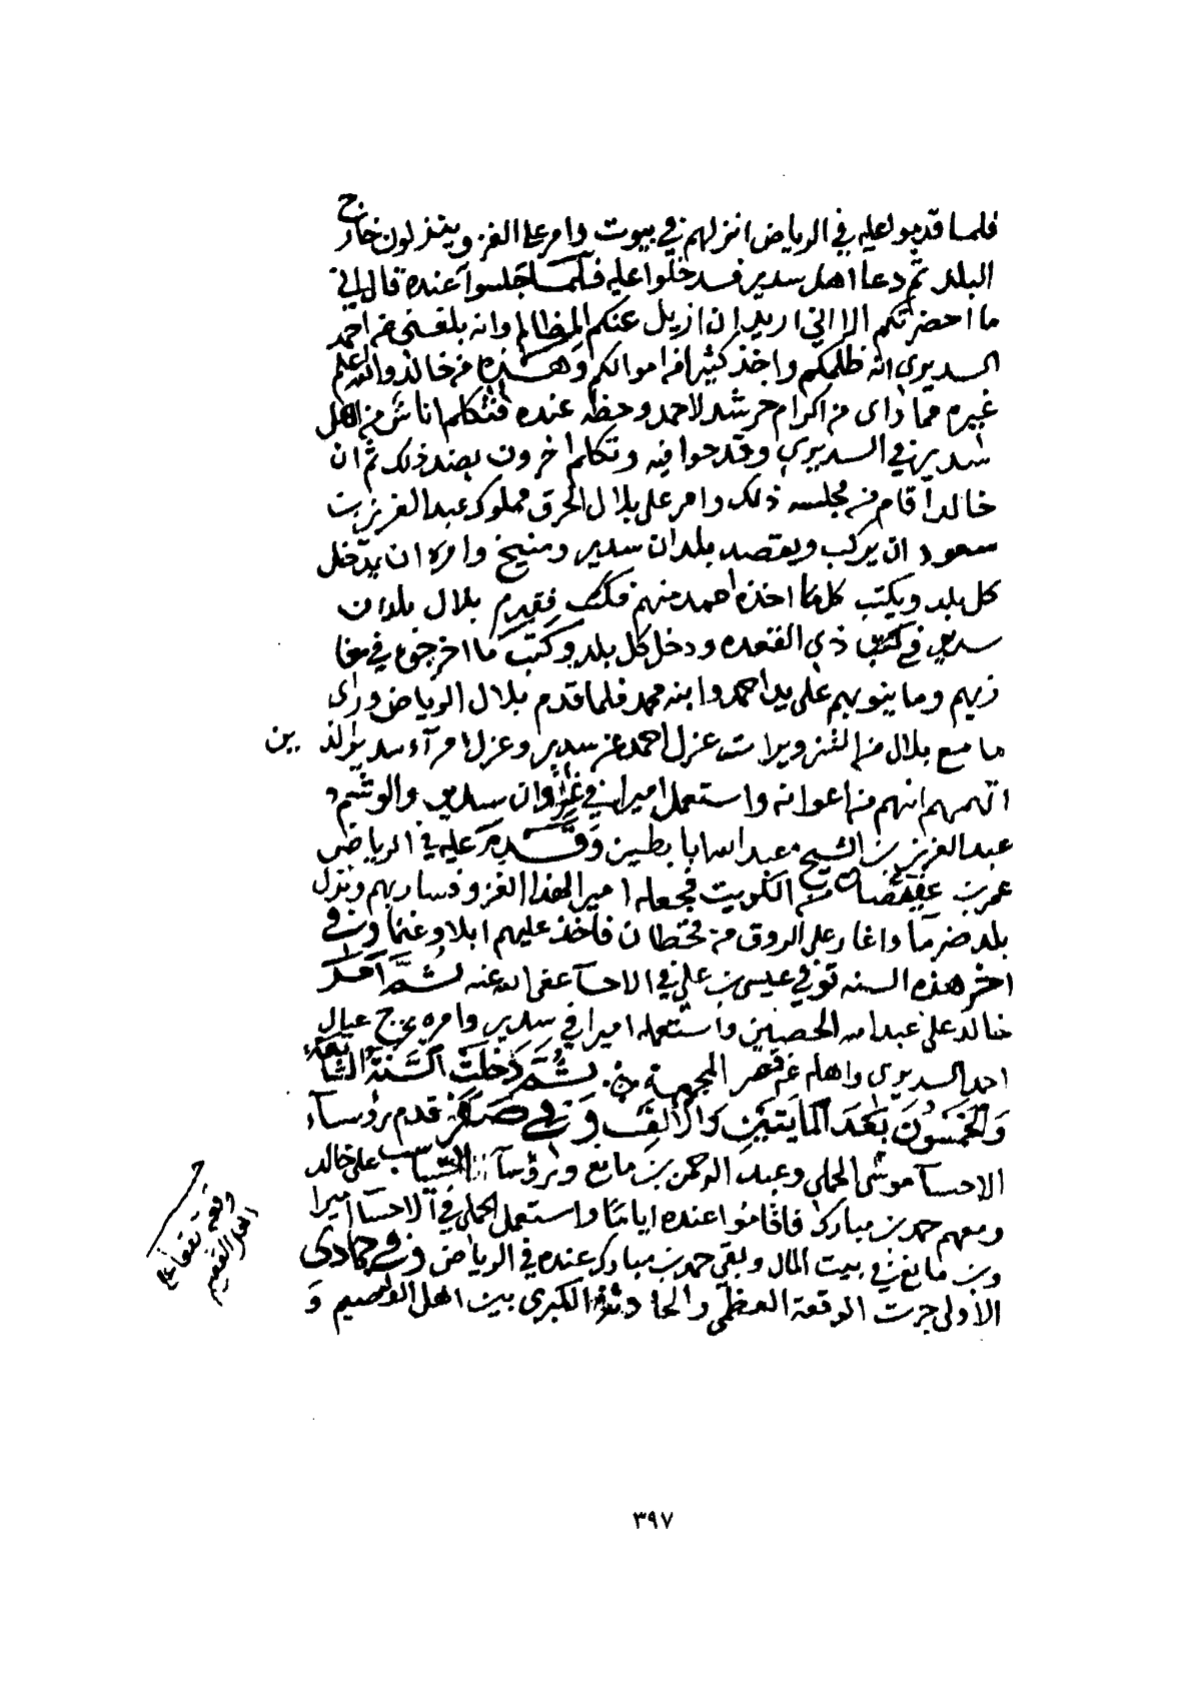 فلما قدموا عليه في الرياض انزلهم في بيوت وامر على الغزو ينزلون خارج
البلد ثم دعا اهل سدير فدخلوا عليه فلما جلسوا عنده قال اني
ما احضرتكم الا اني اريد ان ازيل عنكم المظالم وانه بلغني عن احمد
السديري انه ظلمكم واخذ كثيرا من اموالكم وهذه من خالد والله اعلم
غيره مما رأى من اكرام خرشد لاحمد وحظه عنده فتكلم اناس من اهل
سدير في السديري وقدحوا فيه وتكلم اخرون بضد ذلك ثم ان
خالدا قام من مجلسه ذلك وامر على بلال الحرق مملوك عبدالعزيز بن
سعود ان يركب ويقصد بلدان سدير ومنيخ وامره ان يدخل
كل بلد ويكتب كلما اخذه احمد منهم فقدم بلال بلدان
سدير في ذي القعده ودخل كل بلد وكتب ما اخرجوه في مغا
زيهم وما ينوبهم على يد احمد وابنه محمد فلما قدم بلال الرياض ورأى
ما مع بلال من التزويرات عزل احمد عن سدير وعزل امرآء سدير الذين
اتهمهم انهم من اعوانه واستعمل اميرا في غزوان سدير والوشم
عبدالعزيز بن الشيخ عبدالله ابا بطين وقدم عليه في الرياض
عمر بن عفيصان من الكويت فجعله اميرا لهذا الغزو فسار بهم ونزل
بلد ضرما واغار على الروق من قحطان فاخذ عليهم ابلا وغنما وفي
اخر هذه السنه توفي عيسى بن علي في الاحسآ عفى الله عنه ثم امر
خالد على عبدالله الحصين واستعمله اميرا في سدير وامره يخرج عيال
احمد السديري واهله من قصر المجمعة ثم دخلت السنة السابعة
والخمسون بعد المايتين والألف وفي صفر قدم رؤسآء
الاحسآ موسى الحملي وعبد الرحمن بن مانع ورؤسآ السياسب على خالد
ومعهم حمد بن مبارك فاقاموا عنده اياما واستعمل الحملي في الاحسا اميرا
وبن مانع في بيت المال وبقي حمد بن مبارك عنده في الرياض وفي جمادى
الأولى جرت الوقعة العظمى والحادثة الكبرى بين اهل القصيم و
وقعة بقعا على
اهل القصيم
٣٩٧